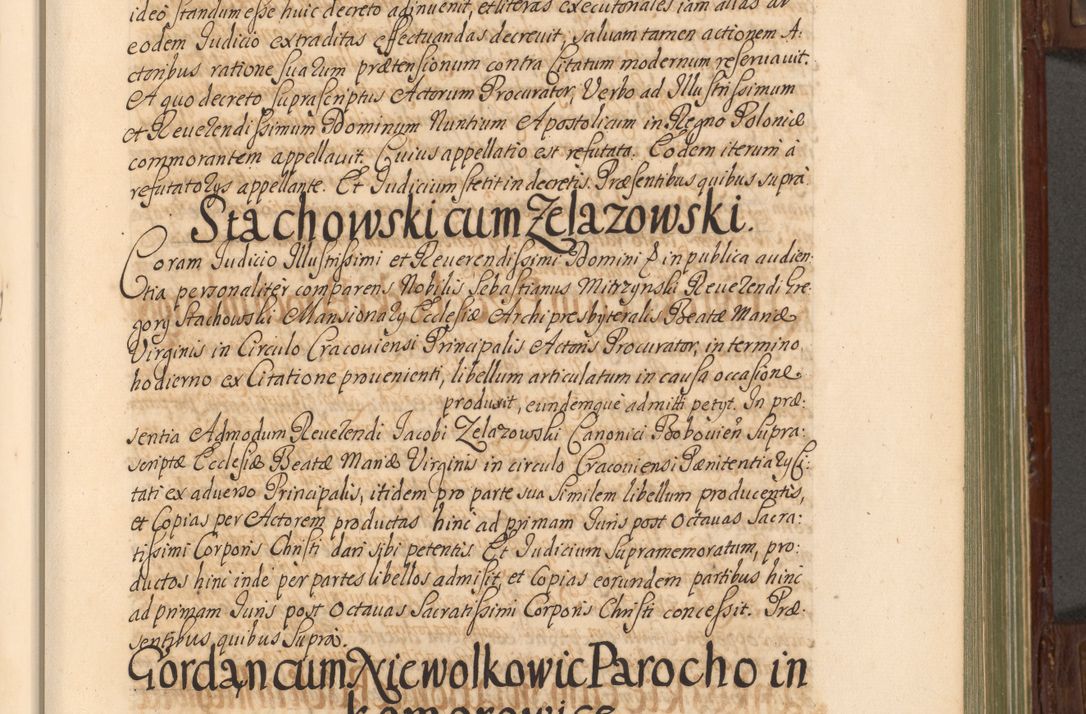 ideo standum esse huic decreto adinuenit, et literas executoriales iam alias ab
eodem Iudicio extraditas effectuandas decreuit, saluam tamen actionem A:
ctoribus ratione suarum prætensionum contra Citatum modernum reseruauit.
A quo decreto suprascriptus Actorum Procurator, Verbo ad Illustrissimum
et Reuerendissimum Dominum Nuntium Apostolicum in Regno Poloniæ
commorantem appellauit. Cuius appellatio est refutata. Eodem iterum à
refutatorys appellante. Et Iudicium stetit in decretis. Præsentibus quibus supra
Stachowski cum Zelazowski.
Coram Iudicio Illustissimi et Reuerendissimi Domini & in publica audien:
tia personalitèr comparens Nobilis Sebastianus Mitrzynski Reuerendi Gre:
gory Stachowski Mansionary Ecclesiæ Archipresbyteralis Beatæ Mariæ
Virginis in Circulo Cracouiensi Principalis Actoris Procurator, in termino
hodierno ex Citatione prouenienti, libellum articulatum in causa occasione
produxit, eundemque admitti petyt. In præ:
sentia Admodum Reuerendi Iacobi Zelazowski Canonici Bobouien Supra:
scriptæ Ecclesiæ Beatæ Mariæ Virginis in circulo Cracouiensi Pænitentiary Ci:
tati ex aduerso Principalis, itidem pro parte sua similem libellum producentis,
et Copias per Actorem productas hinc ad primam Iuris post Octauas Sacra:
tissimi Corporis Christi dari sibi petentis Et Iudicium supramemoratum, pro:
ductos hinc inde per partes libellos admisit, et Copias eorundem partibus hinc
ad primam Iuris post Octauas Sacratissimi Corporis Christi concessit. Præ
sentibus quibus supra.
Gordan cum Niewolkowic Parocho in
komorowice